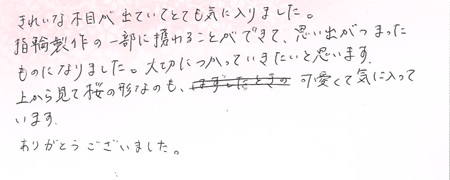 きれいな木目が出ていてとても気に入りました。
指輪製作の一部に携わることができて、思い出がつまった
ものになりました。大切につかっていきたいと思います。
上から見て桜の形なのも、はずしたときの 可愛くて気に入って
います。
ありがとうございました。